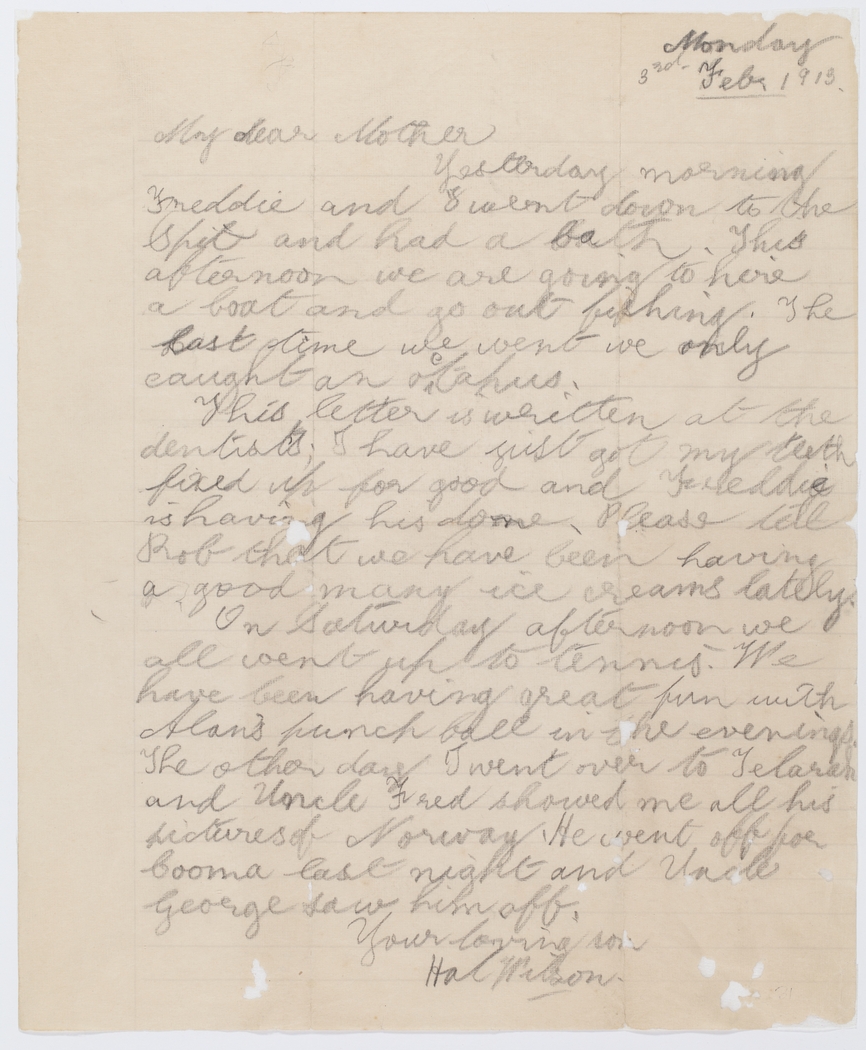 Monday
3rd Feb. 1913.
My dear Mother
Yesterday morning
Freddie and I went down to the
Spit and had a bath. This
afternoon we are going to hire
a boat and go out fishing. The
last time we went we only
caught an octapus.
This letter is written at the
dentists; I have just got my teeth
fixed up for good and Freddie
is having his done. Please tell
Rob that we have been having
a good many ice creams lately.
On Saturday afternoon we
all went up to tennis. We
have been having great fun with
Alan's punch ball in the evenings.
The other day I went over to Telarah
and Uncle Fred showed me all his
pictures of Norway. He went off for
Cooma last night and Uncle
George saw him off.
Your loving son
Hal Wilson.